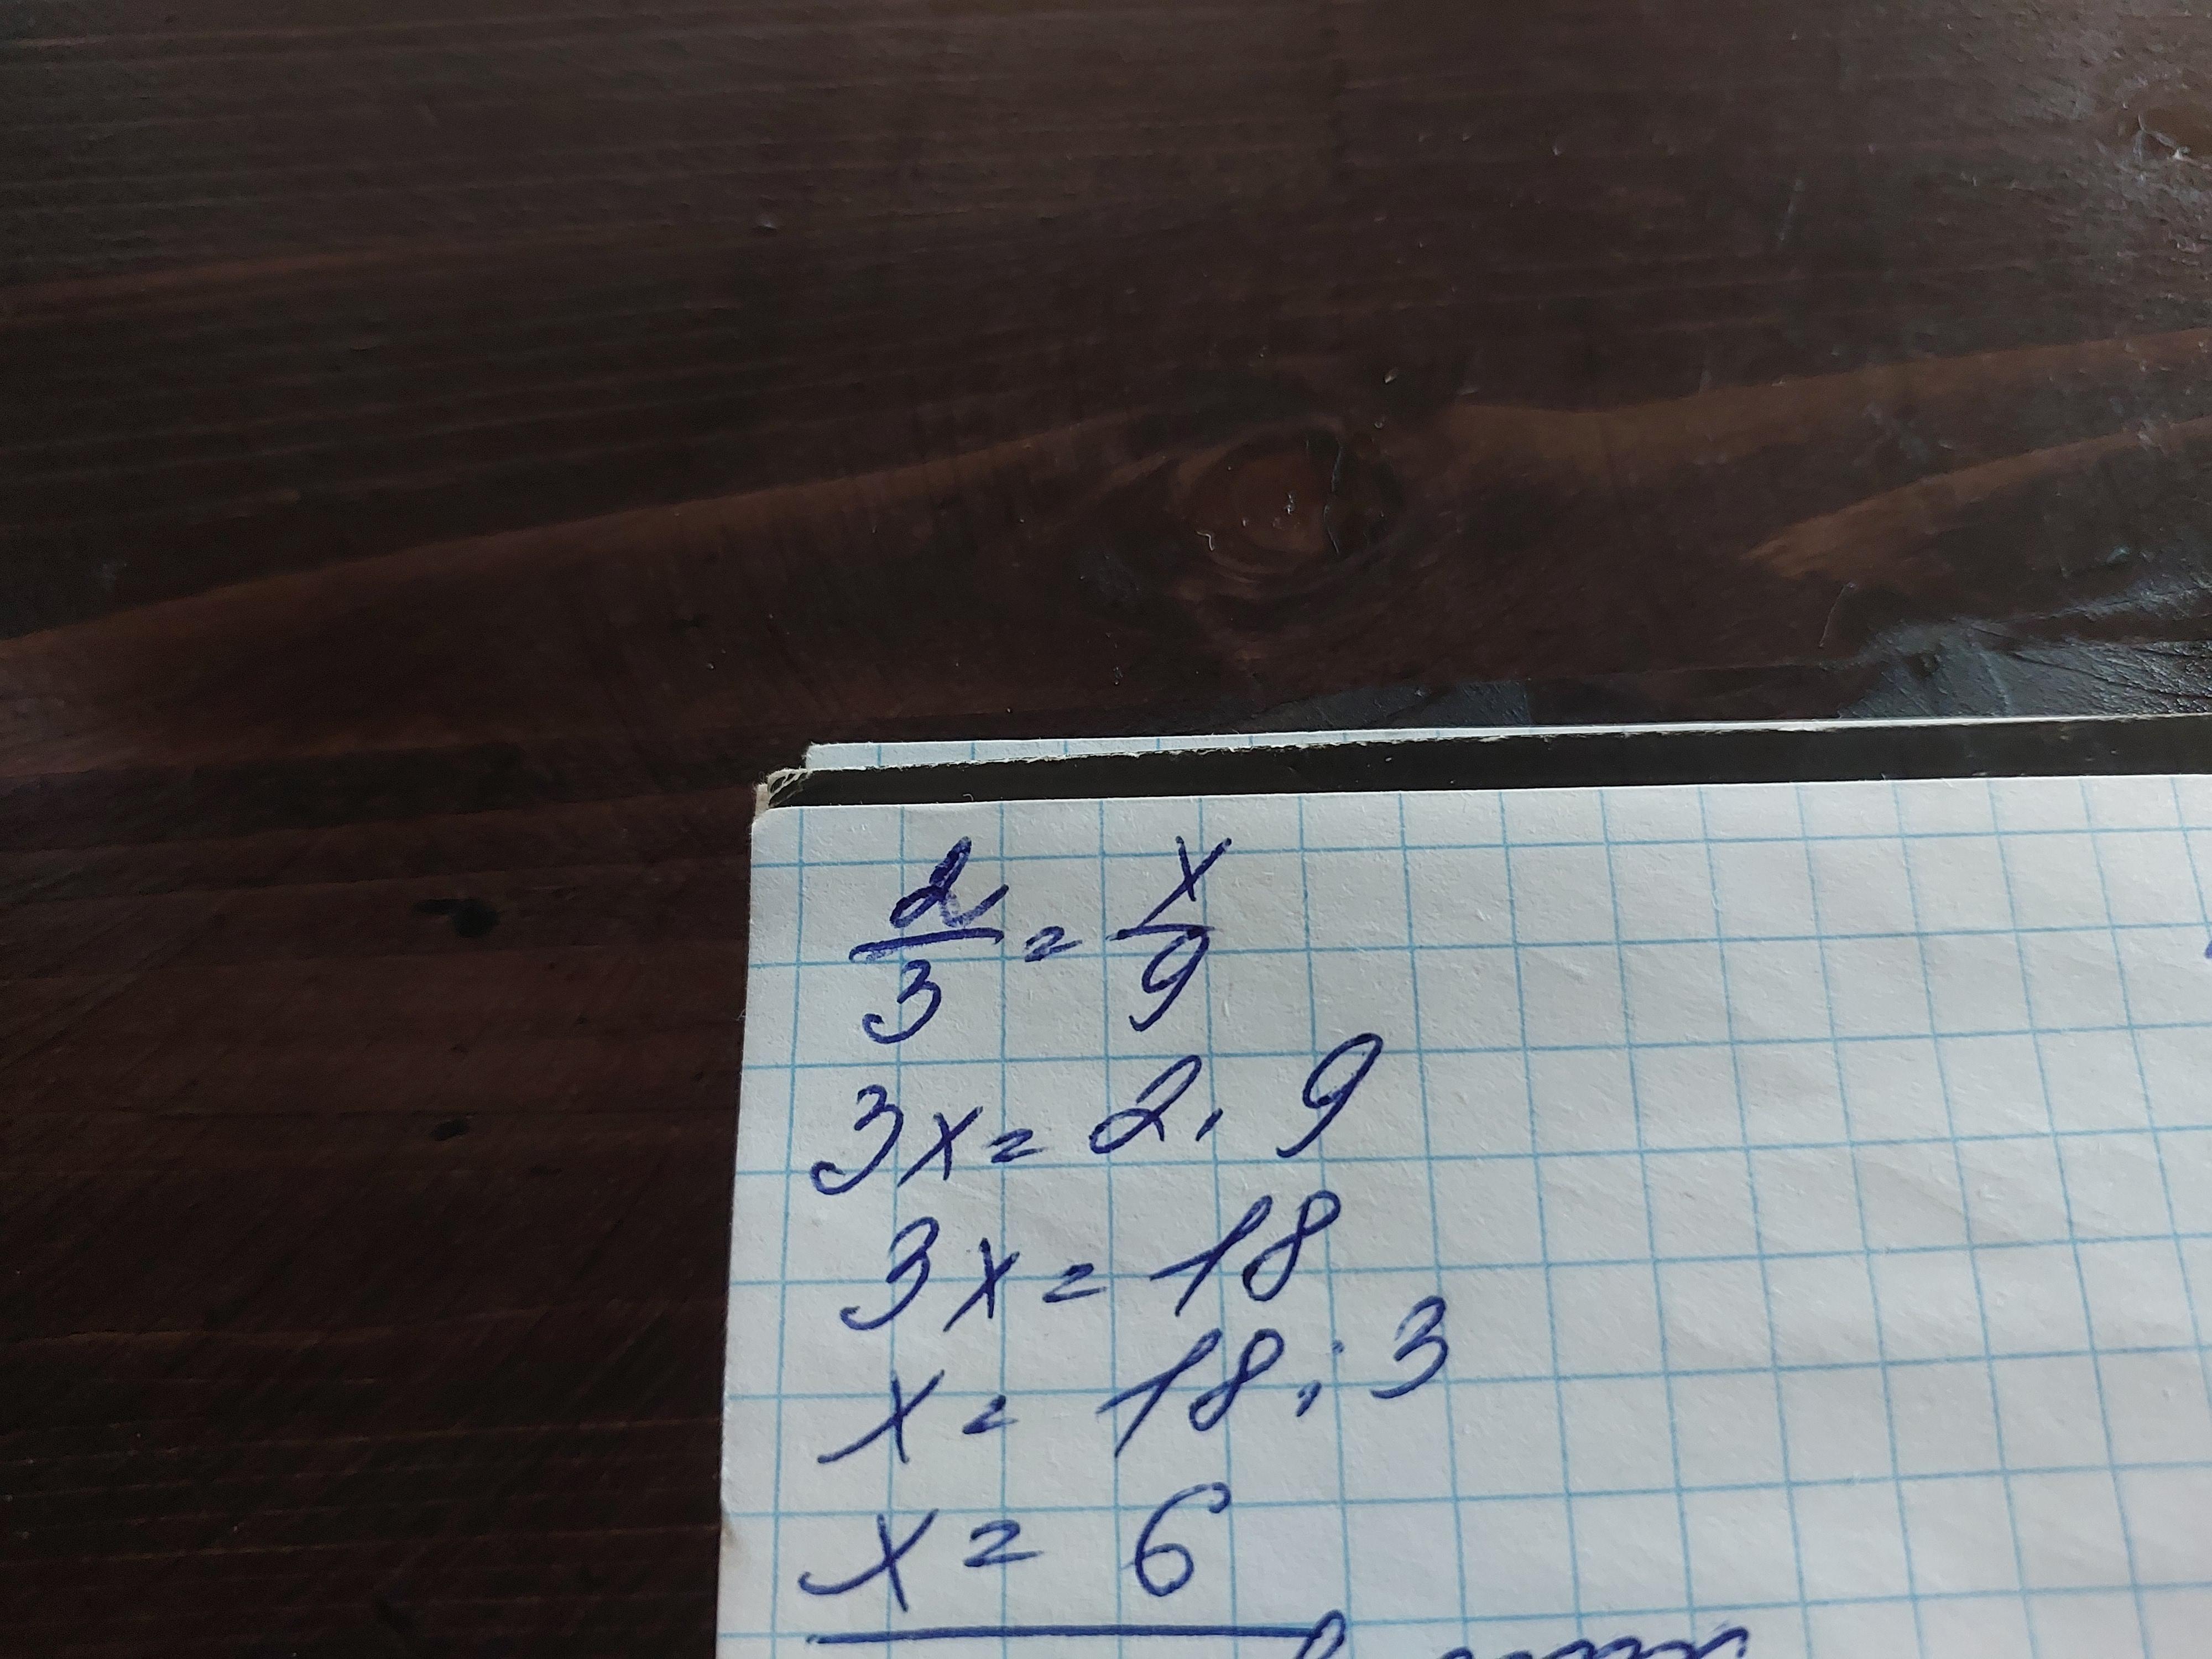 2/3 = x/9
3x = 2 . 9
3x = 18
x = 18 : 3
x = 6